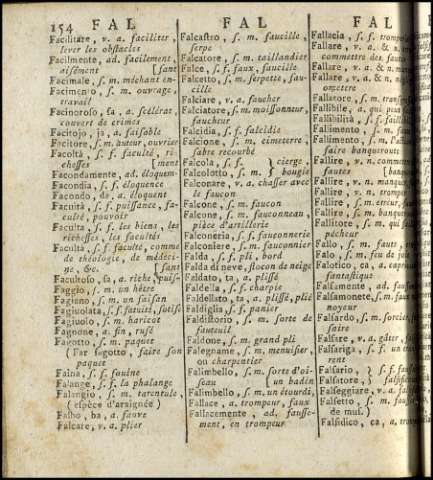 154 FAL FAL FAL
Facilitare, v. a. faciliter,
lever les obstacles
Facilmente, ad. facilement,
aisément [sant
Facimale, s. m. méchant en-
Facimento, s. m. ouvrage,
travail
Facinoroso, sa, a. scélérat,
couvert de crimes
Facitojo, ja, a. faisable
Facitore, s. m. auteur, ouvrier
Facoltà, s. f. faculté, ri-
chesses [ment
Facondamente, ad. éloquem-
Facondia, s. f. éloquence
Facondo, da, a. éloquent
Facuità, s. f. puissance, fa-
culté, pouvoir
Faculta, s. f. les biens, les
richesses, les facultés
Faculta, s. f. faculté, comme
de théologie, de médeci-
ne, &c. [sant
Facultoso, sa, a. riche, puis-
Faggio, s. m. un hêtre
Fagiano, s. m. un faisan
Fagiuolata, s. f. fatuité, sotise
Fagiuolo, s. m. haricot
Fagnone, a. fin, rusé
Fagotto, s. m. paquet
(Far fagotto, faire son
paquet
Faina, s. f. fouine
Falange, s. f. la phalange
Falangio, s. m. tarentule,
(espèce d'araignée)
Falbo, ba, a. fauve
Falcare, v. a. plier
Falcastro, s. m. faucille,
serpe
Falcatore, s. m. taillandier
Falce, s. f. faux, faucille
Falcetto, s. m. serpette, fau-
cille
Falciare, v. a. faucher
Falciatore, s. m. moissonneur,
faucheur
Falcidia, s. f. falcidie
Falcione, s. m. cimeterre,
sabre recourbé
Falcola, s. f. } cierge,
Falcolotto, s. m. } bougie
Falconare, v. a. chasser avec
le faucon
Falcone, s. m. faucon
Falcone, s. m. fauconneau,
pièce d'artillerie
Falconeria, s. f. fauconnerie
Falconiere, s. m. fauconnier
Falda, s. f. pli, bord
Falda di neve, flocon de neige
Faldato, ta, a. plissé
Faldella, s. f. charpie
Faldellato, ta, a. plissé, plié
Faldiglia, s. f. panier
Faldistorio, s. m. sorte de
fauteuil
Faldone, s. m. grand pli
Falegname, s. m. menuisier,
ou charpentier
Falimbello, s. m. sorte d'oi-
seau [un badin
Falimbello, s. m. un étourdi,
Fallace, a. trompeur, faux
Fallacemente, ad. fausse-
ment, en trompeur
Fallacia, s. f.
Fallare, v. a. & n.
commettre des fautes
Fallare, v. a. & n.
omettre
Fallatore, s. m.
Fallibile, a. qui peut
Fallibilità, s. f.
Fallimento, s. m.
Fallimento, s. m.
faire banqueroute
Fallire, v. n.
fautes
Fallire, v. n.
Fallire, v. n.
Fallire, s. m. erreur,
Fallito, s. m.
Fallitore, s. m. qui
pécheur
Fallo, s. m. faute,
Falo, s. m. feu de joie
Falotico, ca, a.
fantastique
Falsamente, ad.
Falsamonete, s. m.
noyeur
Falsardo, s. m. sorcier,
faire
Falsare, v. a. gâter,
Falsariga, s. f.
rent
Falsario, }
Falsatore, }
Falseggiare, v. a.
Falsetto, s. m.
de mus.
Falsidico, ca, a.